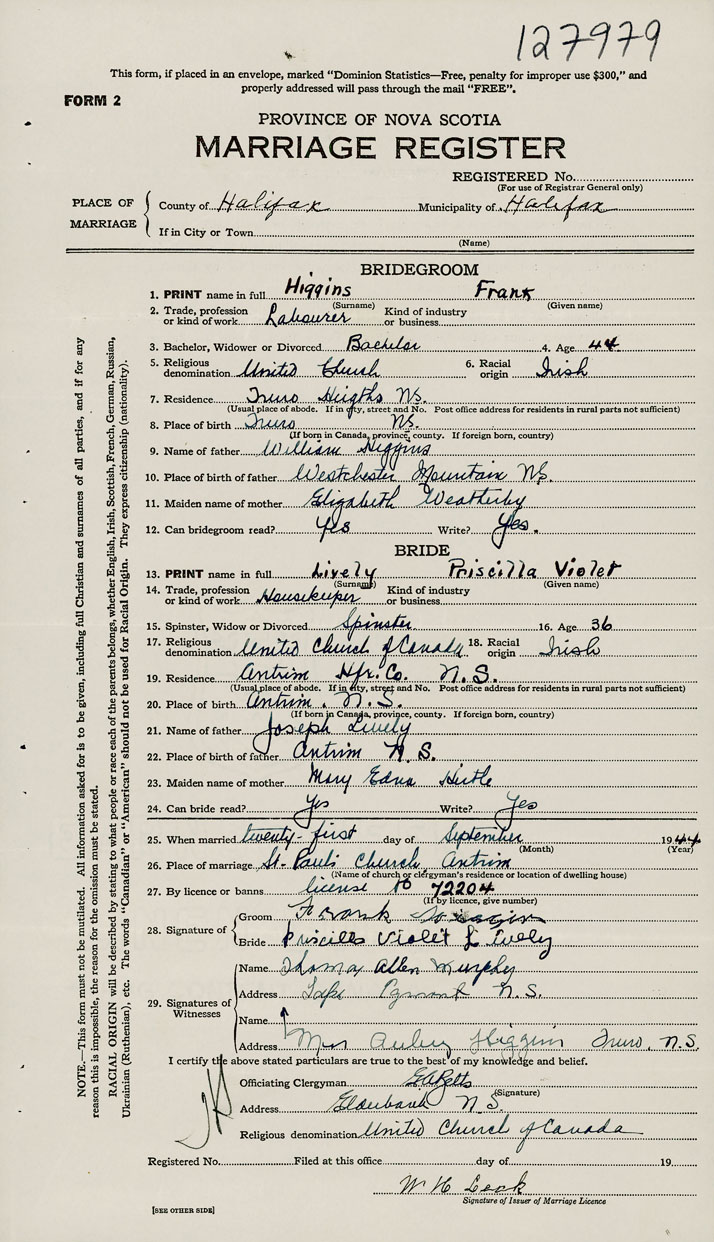 127979
This form, if placed in an envelope, marked "Dominion Statistics—Free, penalty for improper use $300," and
properly addressed will pass through the mail "FREE".
FORM 2
PROVINCE OF NOVA SCOTIA
MARRIAGE REGISTER
REGISTERED No.
(For use of Registrar General only)
PLACE OF MARRIAGE
County of Halifax Municipality of Halifax
If in City or Town
(Name)
BRIDEGROOM
1. PRINT name in full Higgins Frank
(Surname) (Given name)
2. Trade, profession or kind of work Labourer Kind of industry or business
3. Bachelor, Widower or Divorced Bachelor 4. Age 44
5. Religious denomination United Church 6. Racial origin Irish
7. Residence Truro Heigths NS.
(Usual place of abode. If in city, street and No. Post office address for residents in rural parts not sufficient)
8. Place of birth Truro NS.
(If born in Canada, province, county. If foreign born, country)
9. Name of father William Higgins
10. Place of birth of father Westchester Mountain NS.
11. Maiden name of mother Elizabeth Weatherby
12. Can bridegroom read? Yes Write? Yes.
BRIDE
13. PRINT name in full Lively Priscilla Violet
(Surname) (Given name)
14. Trade, profession or kind of work Housekeeper Kind of industry or business
15. Spinster, Widow or Divorced Spinster 16. Age 36
17. Religious denomination United Church of Canada 18. Racial origin Irish
19. Residence Antrim Hfx. Co. N.S.
(Usual place of abode. If in city, street and No. Post office address for residents in rural parts not sufficient)
20. Place of birth Antrim. N.S.
(If born in Canada, province, county. If foreign born, country)
21. Name of father Joseph Lively
22. Place of birth of father Antrim N.S.
23. Maiden name of mother Mary Edna Hirtle
24. Can bride read? Yes Write? Yes
25. When married twenty-first day of September 1944
(Month) (Year)
26. Place of marriage St-Paul's Church, Antrim
(Name of church or clergyman's residence or location of dwelling house)
27. By licence or banns license No 72204
(If by licence, give number)
28. Signature of
Groom Frank
Bride Priscilla Violet Lively
29. Signatures of Witnesses
Name Thomas Allen Murphy
Address N.S.
Name
Address Mrs Higgins Truro. N.S.
I certify the above stated particulars are true to the best of my knowledge and belief.
Officiating Clergyman
(Signature)
Address Elderbank N.S.
Religious denomination United Church of Canada
Registered No. Filed at this office day of 19
W H Leck
Signature of Issuer of Marriage Licence
[SEE OTHER SIDE]
NOTE.—This form must not be mutilated. All information asked for is to be given, including full Christian and surnames of all parties, and if for any
reason this is impossible, the reason for the omission must be stated.
RACIAL ORIGIN will be described by stating to what people or race each of the parents belongs, whether English, Irish, Scottish, French, German, Russian,
Ukrainian (Ruthenian), etc. The words "Canadian" or "American" should not be used for Racial Origin. They express citizenship (nationality).